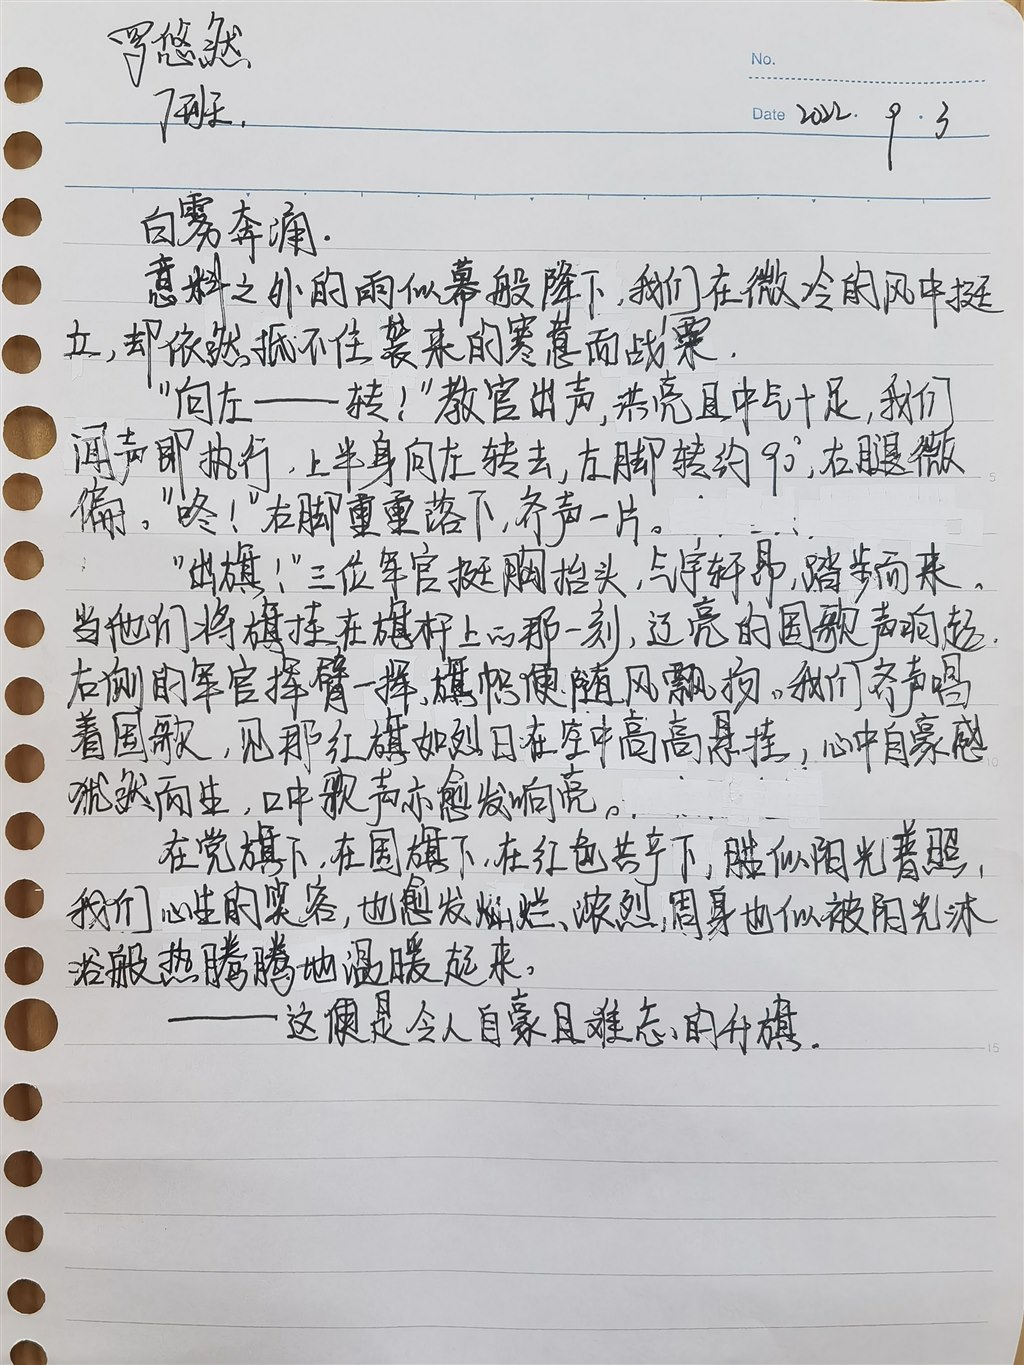 罗悠然
7班.
No.
Date 2022. 9. 3
白雾奔涌.
意料之外的雨似幕般降下,我们在微冷的风中挺
立,却依然抵不住袭来的寒意而战栗.
"向左——转!"教官出声,洪亮且中气十足,我们
闻声即执行,上半身向左转去,左脚转约90°,右腿微
偏。"咚!"右脚重重落下,齐声一片。
5
"出旗!"三位军官挺胸抬头,气宇轩昂,踏步而来。
当他们将旗挂在旗杆上的那一刻,辽亮的国歌声响起.
右侧的军官挥臂一挥,旗帜便随风飘扬。我们齐声唱
着国歌,见那红旗如烈日在空中高高悬挂,心中自豪感
10
犹然而生,口中歌声亦愈发响亮。
在党旗下,在国旗下,在红色共产下,胜似阳光普照,
我们心生的笑容,也愈发灿烂、浓烈,周身也似被阳光沐
浴般热腾腾地温暖起来。
——这便是令人自豪且难忘的升旗.
15